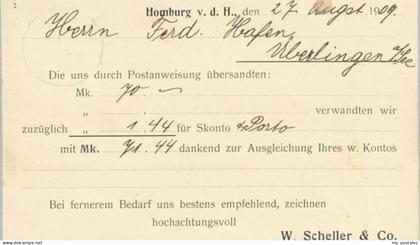 2
Homburg v. d. H., den 27 Augst 1909.
Herrn Ferd. Hafen,
Überlingen
Die uns durch Postanweisung übersandten:
Mk. 70.—
„ verwandten wir
zuzüglich „ 1.44 für Skonto & Porto
mit Mk. 71.44 dankend zur Ausgleichung Ihres w. Kontos
Bei fernerem Bedarf uns bestens empfehlend, zeichnen
hochachtungsvoll
W. Scheller & Co.